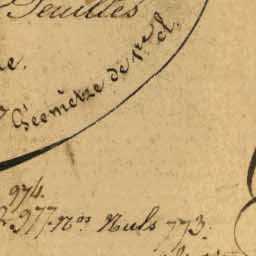 Feuilles
e.
Géomètre de 1re cl.
974.
977. Nos Nuls 773.